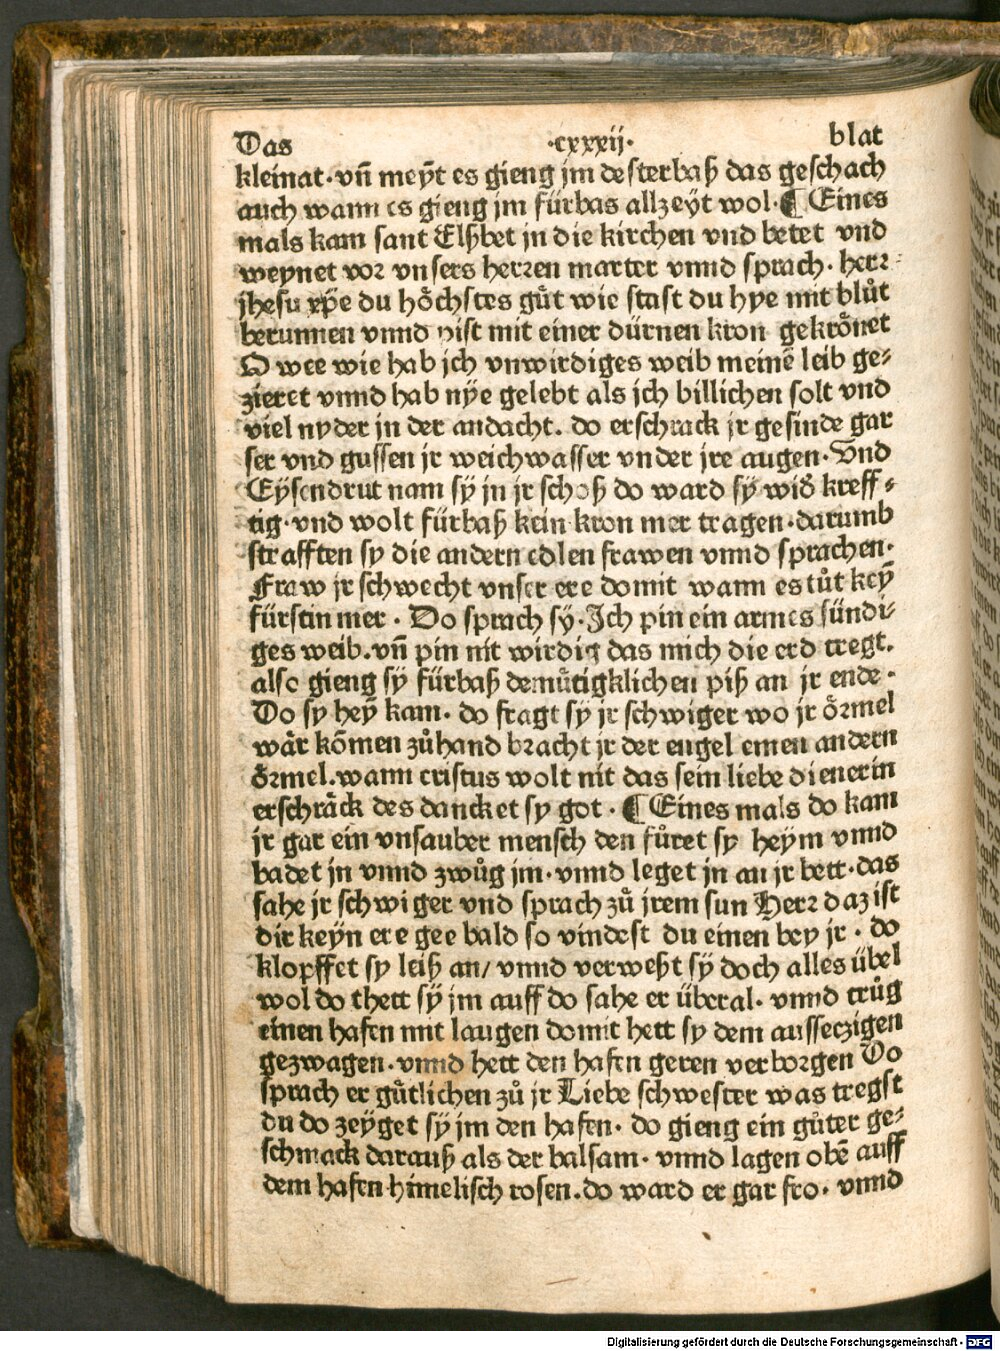 Das ·cxxxij· blat
kleinat·vñ meÿt es gieng jm desterbaß das geschach
auch wann es gieng jm fürbas allzeÿt wol·¶ Eines
mals kam sant Elßbet in die kirchen vnd betet vnd
weynet vor vnsers herren marter vnnd sprach· herr
jhesu xp̄e du hoͤchstes guͤt wie stast du hye mit bluͦt
berunnen vnnd pist mit einer dürnen kron gekroͤnet
O wee wie hab jch vnwirdiges weib meinē leib ge⸗
zieret vnnd hab nÿe gelebt als jch billichen solt vnd
viel nyder jn der andacht. do erschrack jr gesinde gar
ser vnd gussen jr weichwasser vnder jre augen·Vnd
Eÿsendrut nam sÿ jn jr schoß do ward sÿ wid̓ kreff⸗
tig·vnd wolt fürbaß kein kron mer tragen·darumb
strafften sy die andern edlen frawen vnnd sprachen·
Fraw jr schwecht vnser ere domit wann es tuͦt keȳ
fürstin mer· Do sprach sÿ·Jch pin ein armes sündi⸗
ges weib.vñ pin nit wirdig das mich die erd tregt.
also gieng sÿ fürbaß demuͤtigklichen piß an jr ende·
Do sy heȳ kam· do fragt sÿ jr schwiger wo jr oͤrmel
waͤr kōmen zuͦhand bracht jr der engel einen andern
oͤrmel.wann cristus wolt nit das sein liebe dienerin
erschraͤck des dancket sy got·¶ Eines mals do kam
jr gar ein vnsauber mensch den fuͦret sy heÿm vnnd
badet jn vnnd zwuͦg jm·vnnd leget jn an jr bett·das
sahe jr schwiger vnd sprach zuͦ jrem sun Herr daz ist
dir keÿn ere gee bald so vindest du einen bey jr· do
klopffet sy leiß an/ vnnd verweßt sÿ doch alles übel
wol do thett sÿ jm auff do sahe er überal· vnnd truͦg
einen hafen mit laugen domit hett sy dem ausseczigen
gezwagen·vnnd hett den hafen geren verborgen Do
sprach er guͤtlichen zuͦ jr Liebe schwester was tregst
du do zeÿget sÿ jm den hafen· do gieng ein guͦter ge⸗
schmack darauß als der balsam· vnnd lagen obē auff
dem hafen himelisch rosen.do ward er gar fro· vnnd
Digitalisierung gefördert durch die Deutsche Forschungsgemeinschaft - DFG